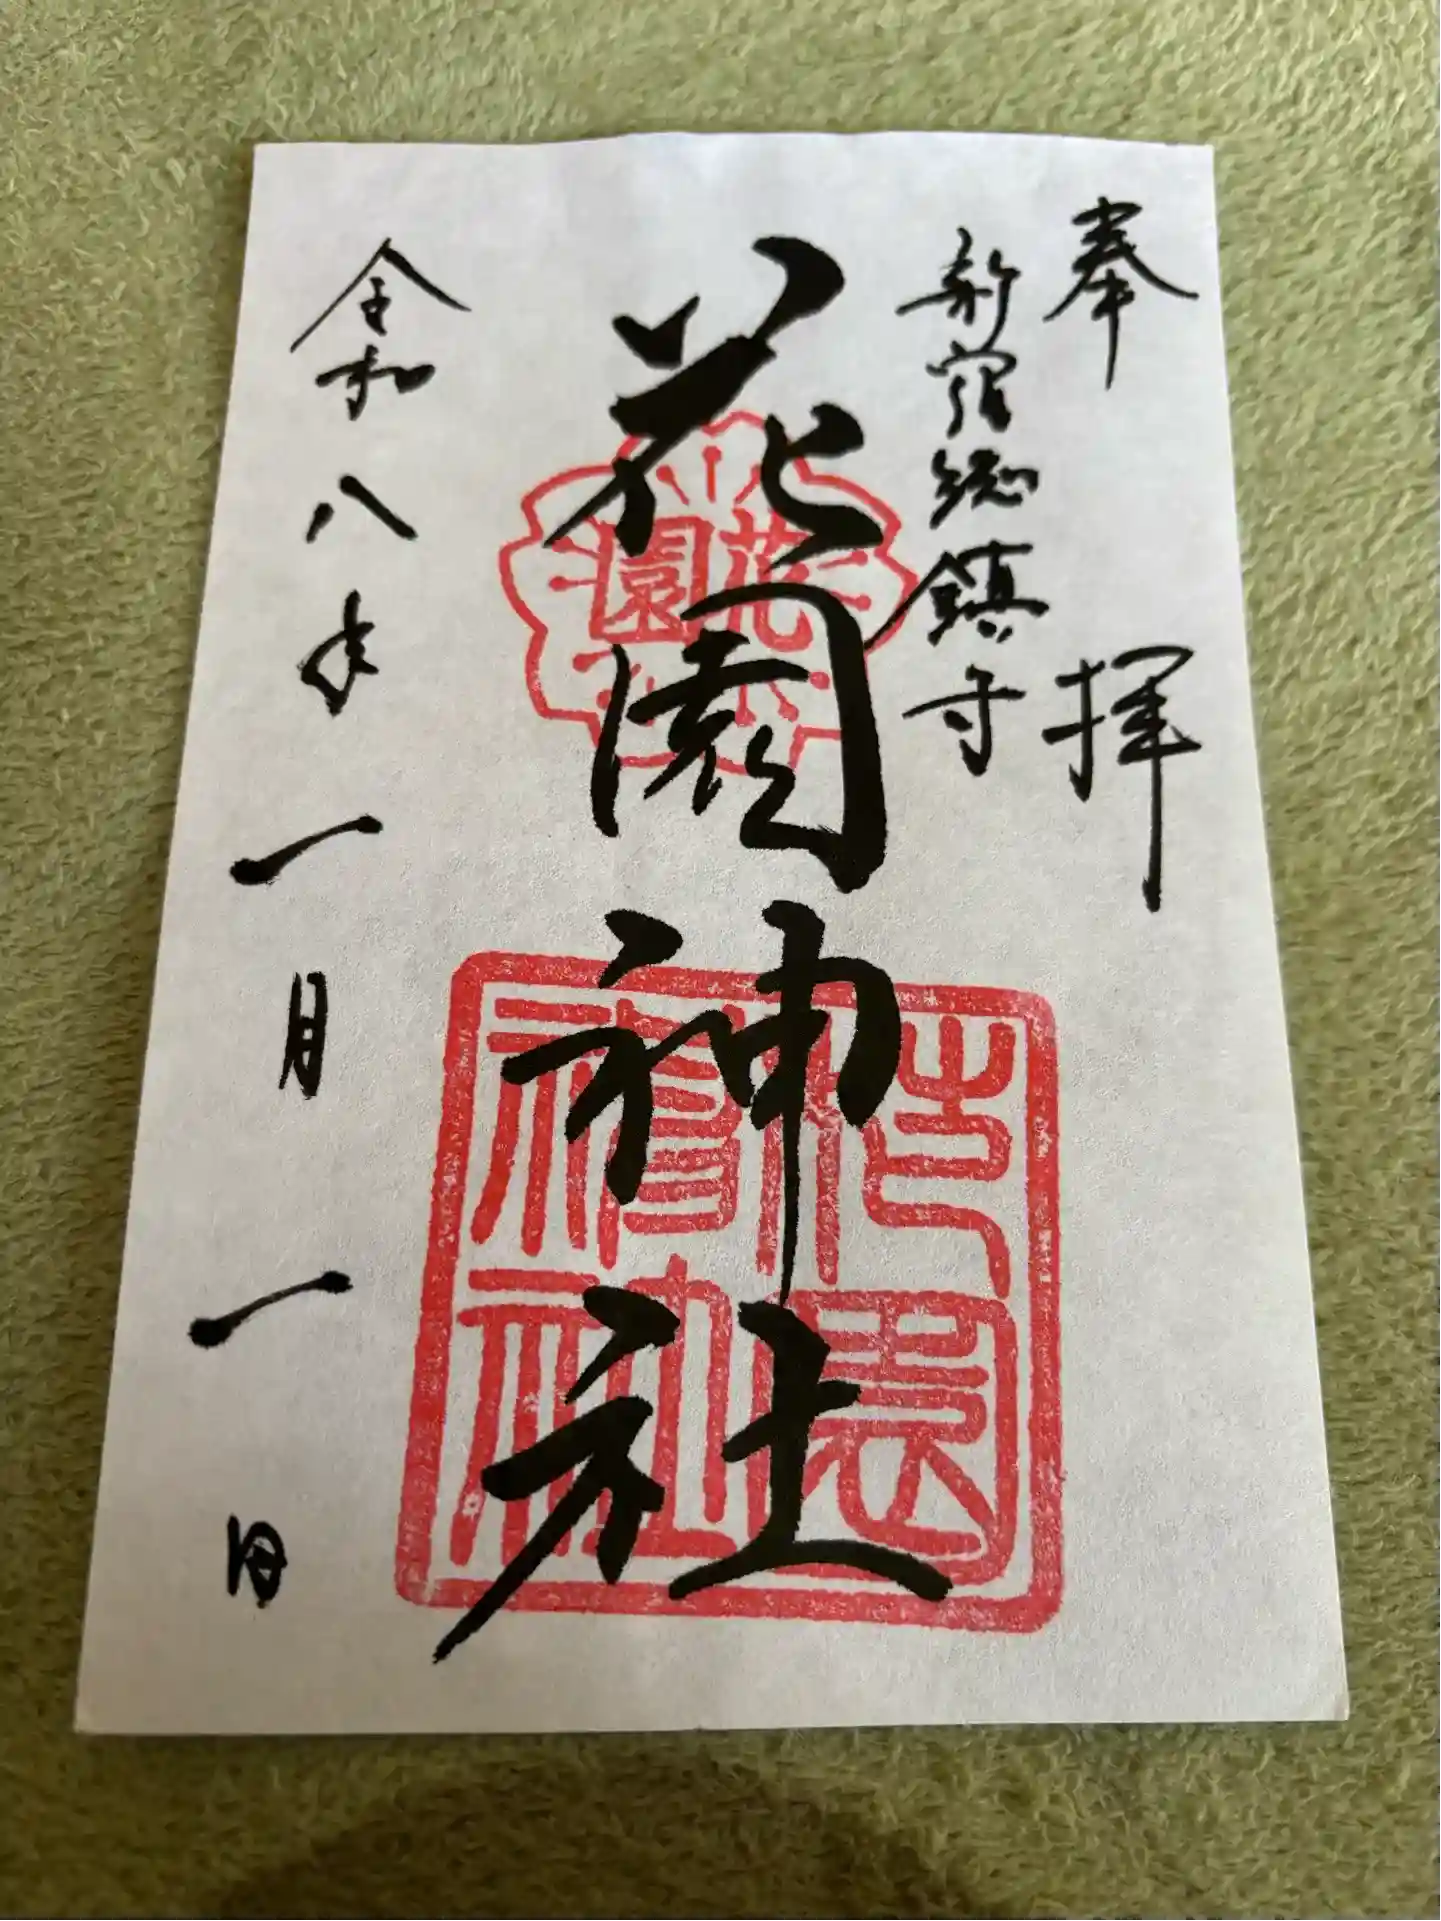 奉拝
新宿総鎮守
花園神社
花園神社
花園神社
令和八年一月一日